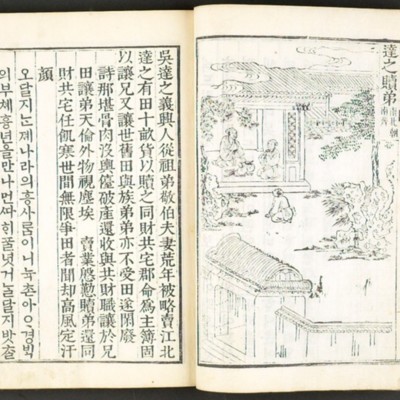 達之贖弟
吳達之義興人從祖弟敬伯夫妻荒年被略賣江北
達之有田十畝貨以贖之同財共宅郡命為主簿固
以讓兄又讓世舊田與族弟弟亦不受田遂閑廢
詩那堪骨肉沒與儓破產還收與共財職讓於兄
田讓弟天倫外物視塵埃 賣業慇勤贖弟還同
財共宅任飢寒世間無限爭田者聞却高風定汗
顔
오달지ᄂᆞᆫ졔나라의흥사ᄅᆞᆷ이니뉵촌아ᄋᆞ경ᄇᆡᆨ
의부쳬흉년을만나먼ᄯᅡ히ᄑᆞᆯ녓거ᄂᆞᆯ달지밧ᄎᆞᆯ